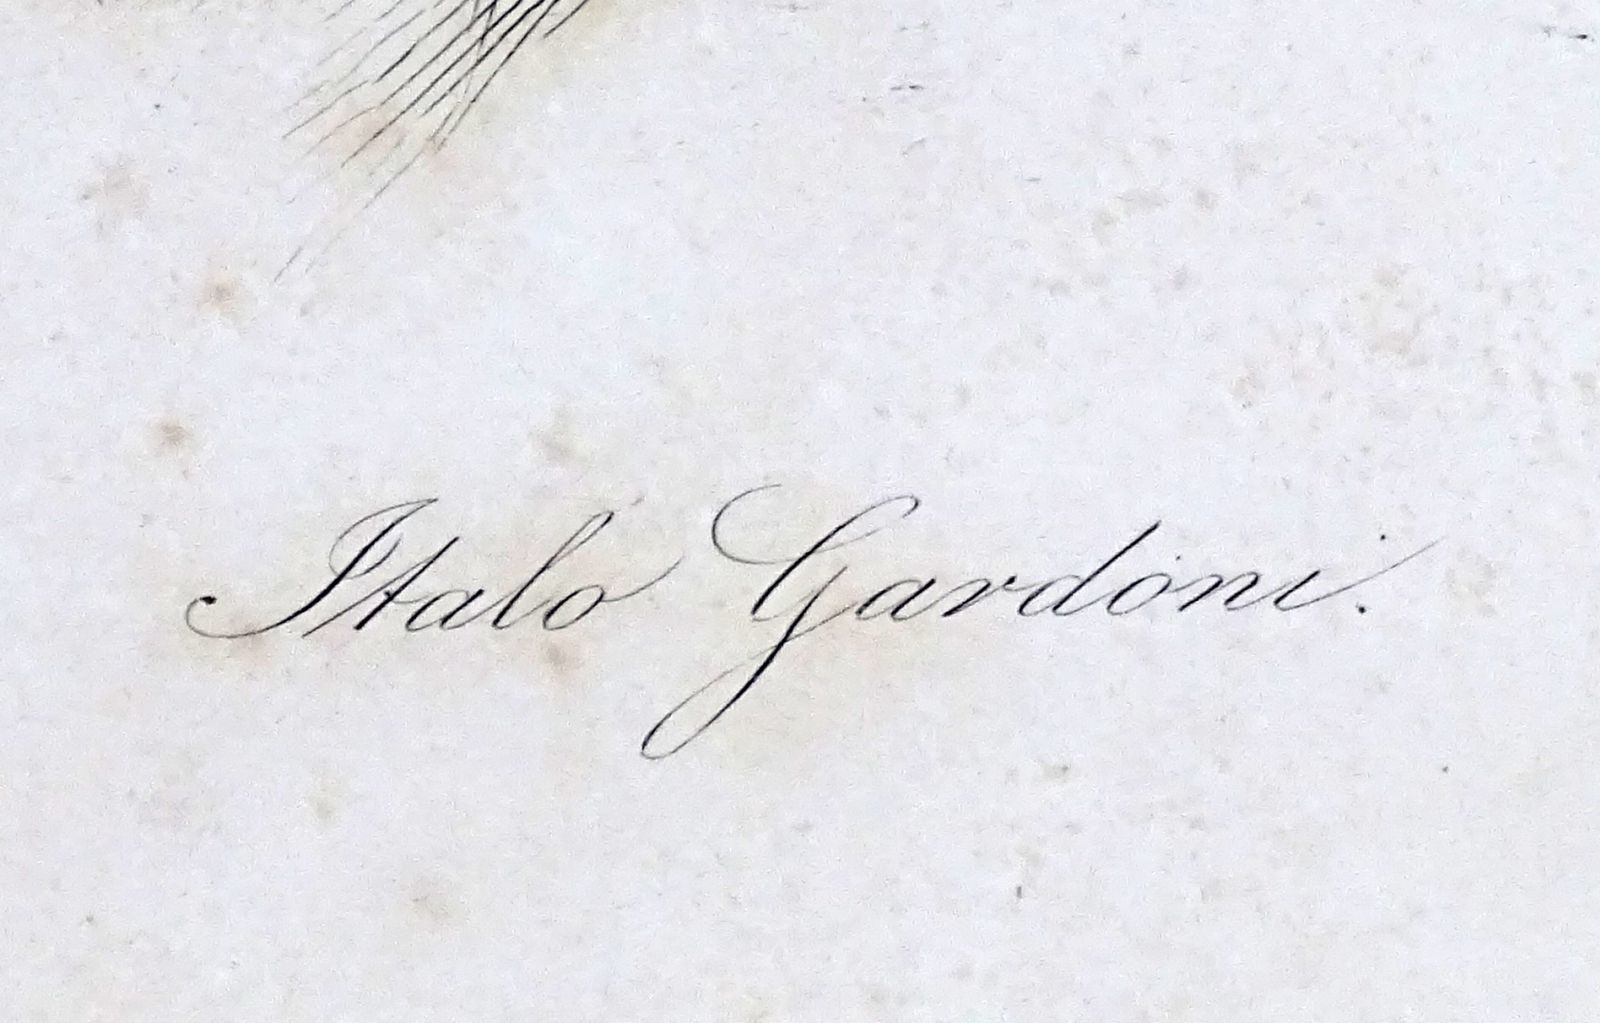 Italo Gardoni.